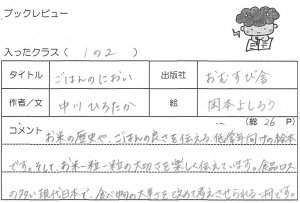 ブックレビュー
入ったクラス( 1の2 )
タイトル ごはんのにおい 出版社 おむすび舎
作者/文 中川ひろたか 絵 岡本よしろう
(総 26 P)
コメント
お米の歴史や、ごはんの良さを伝える、低学年向けの絵本
です。そして、お米一粒一粒の大切さを楽しく伝えています。食品ロス
の多い現代日本で、食べ物の大事さを改めて考えさせられる一冊です。